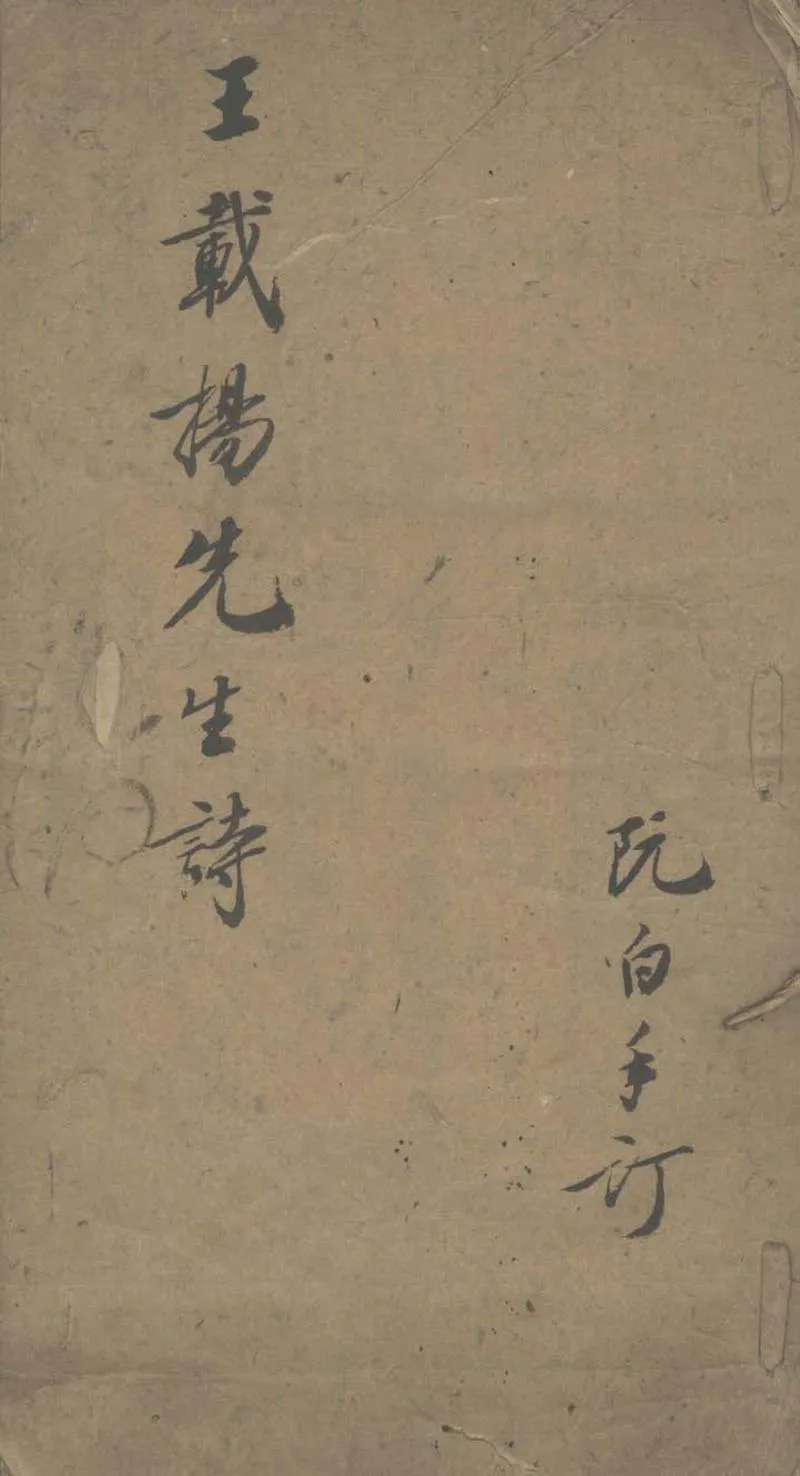 王載揚先生詩
阮白手訂